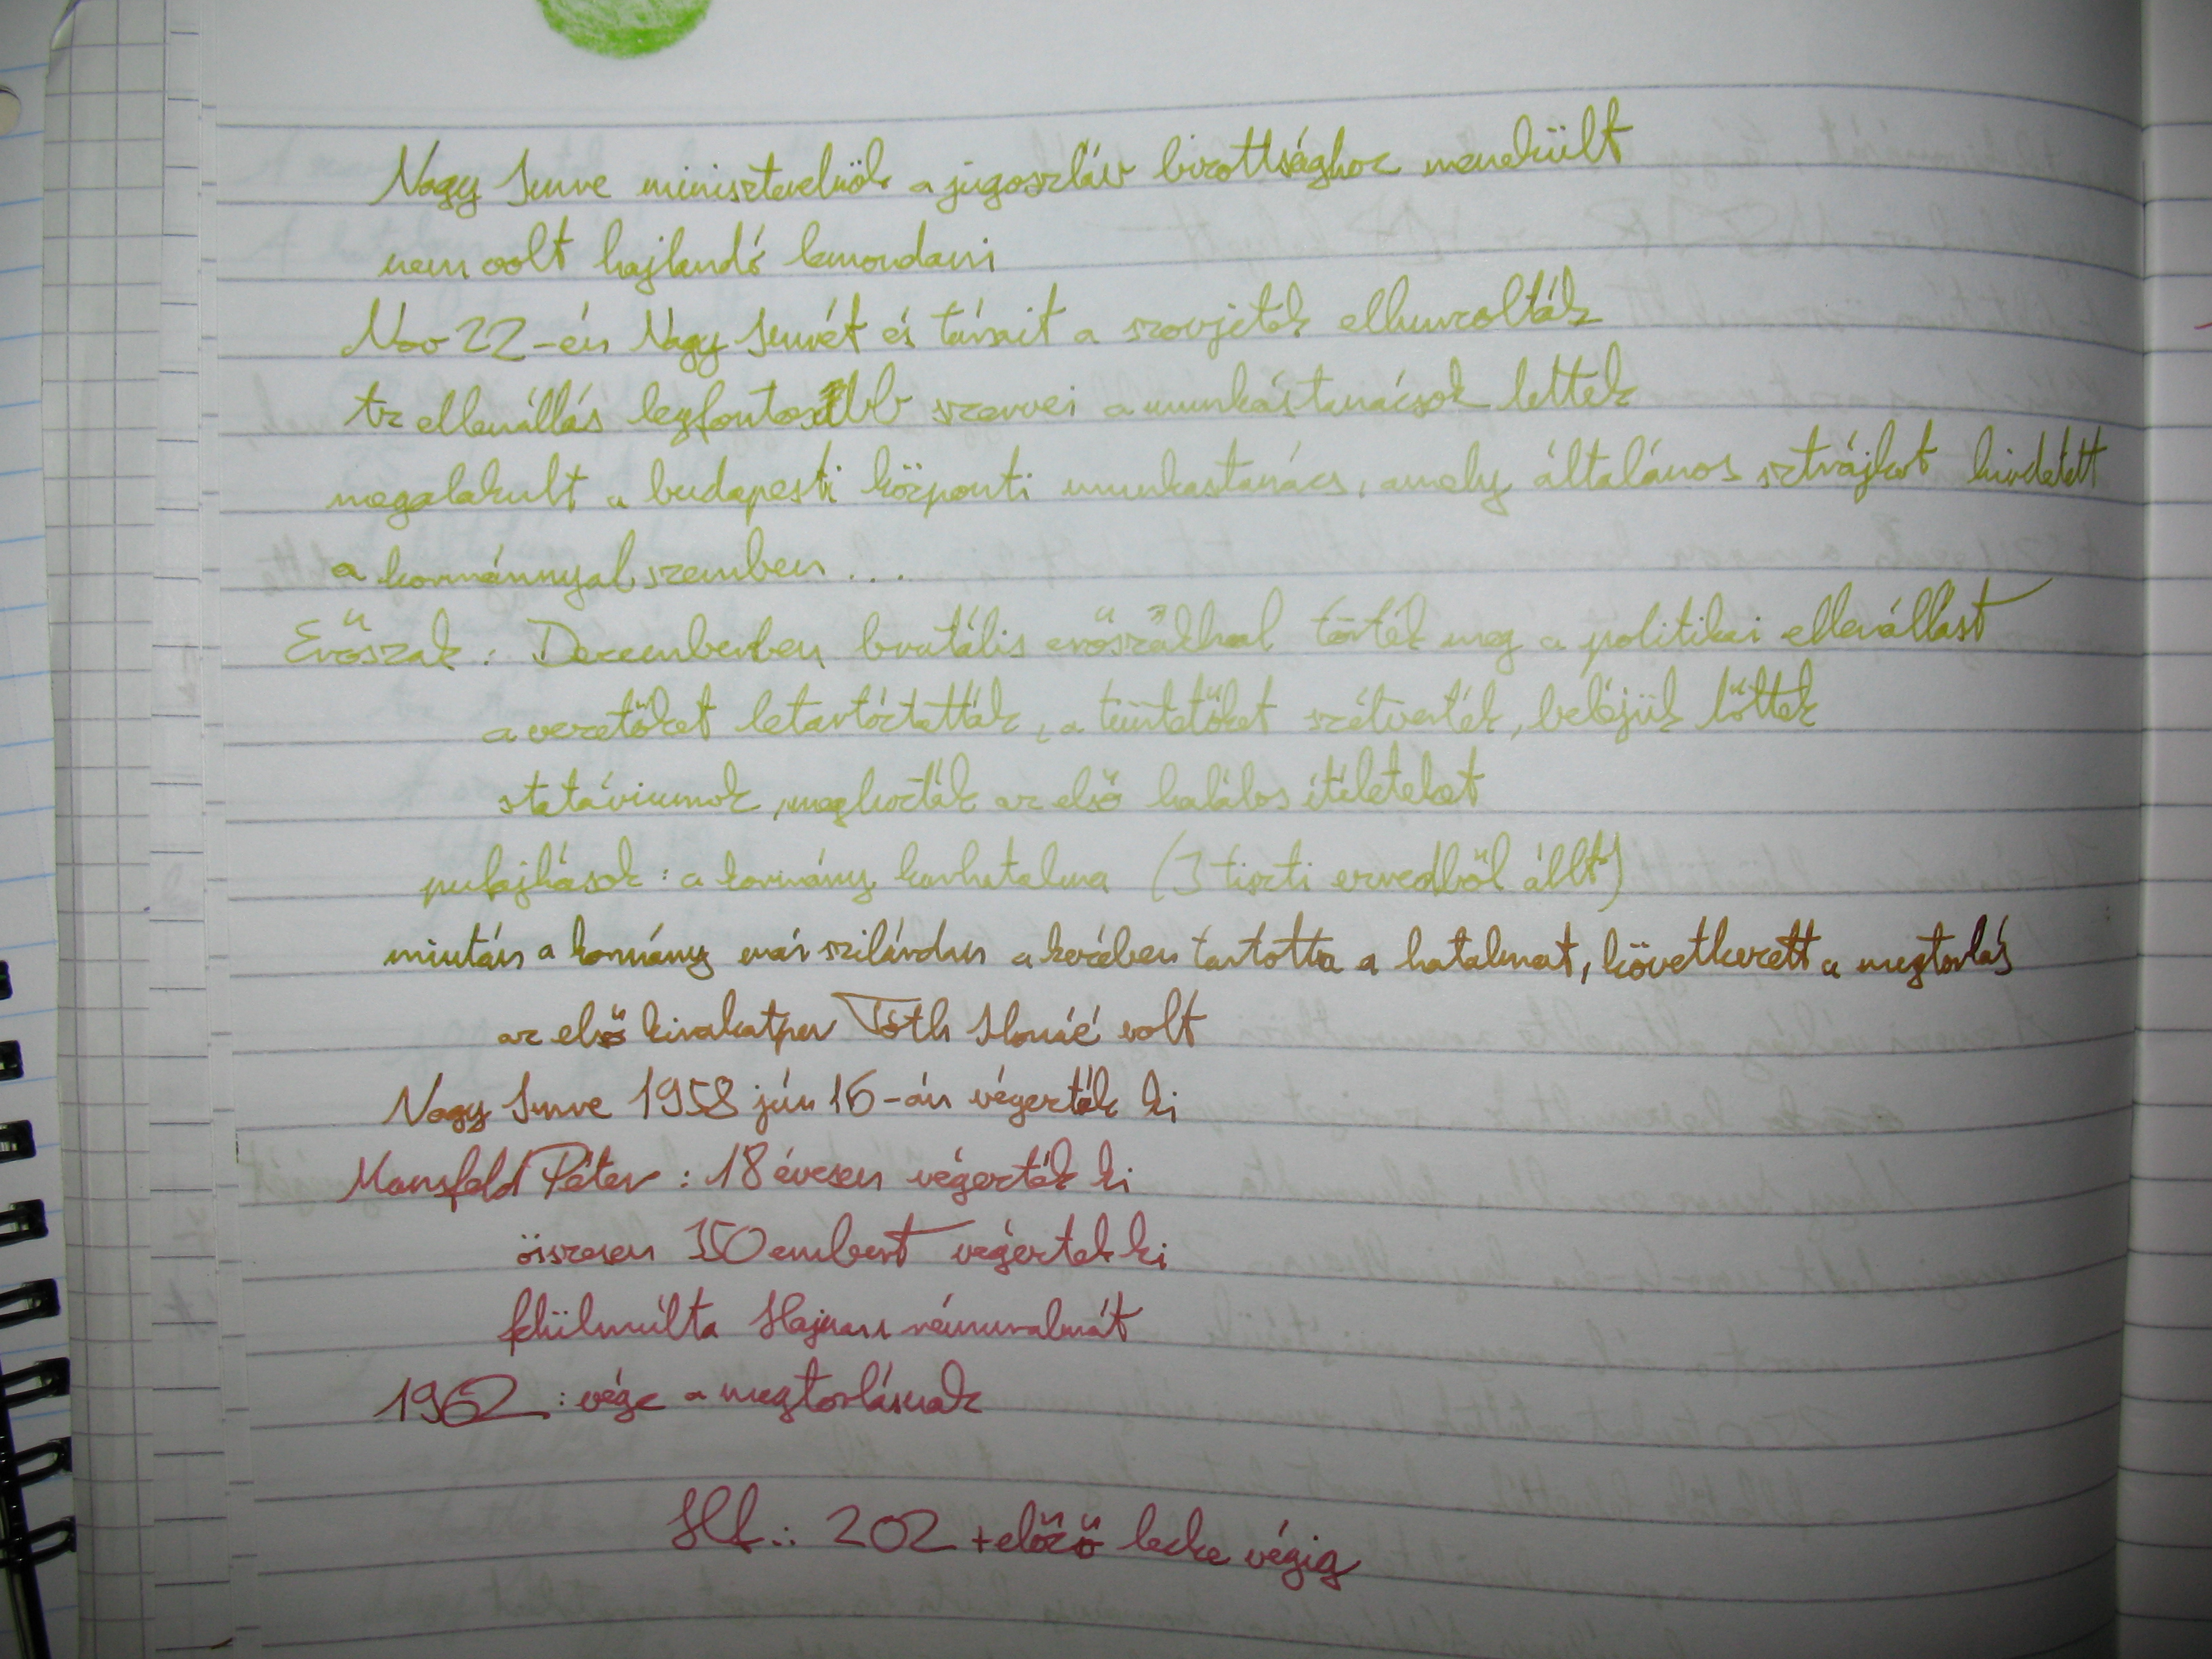 Nagy Imre miniszterelnök a jugoszláv bizottsághoz menekült
nem volt hajlandó lemondani
Nov 22-én Nagy Imrét és társait a szovjetek elhurcolták
Az ellenállás legfontosabb szervei a munkástanácsok lettek
megalakult a budapesti központi munkastanács, amely általános sztrájkot hirdetett
a kormánnyal szemben ...
Erőszak : Decemberben brutális erőszakkal törték meg a politikai ellenállást
a vezetőket letartóztatták, a tüntetőket szétverték, beléjük lőttek
statáriumok, meghozták az első halálos ítéleteket
pufajkások : a kormány karhatalma (3 tiszti ezredből állt)
miután a kormány már szilárdan a kezében tartotta a hatalmat, következett a megtorlás
az első kirakatper Tóth Ilonáé volt
Nagy Imre 1958 jún 16-án végezték ki
Mansfeld Péter : 18 évesen végezték ki
összesen 350 embert végeztek ki
felülmúlta Haynau rémuralmát
1962 : vége a megtorlásnak
Hf.: 202 + előző lecke végig